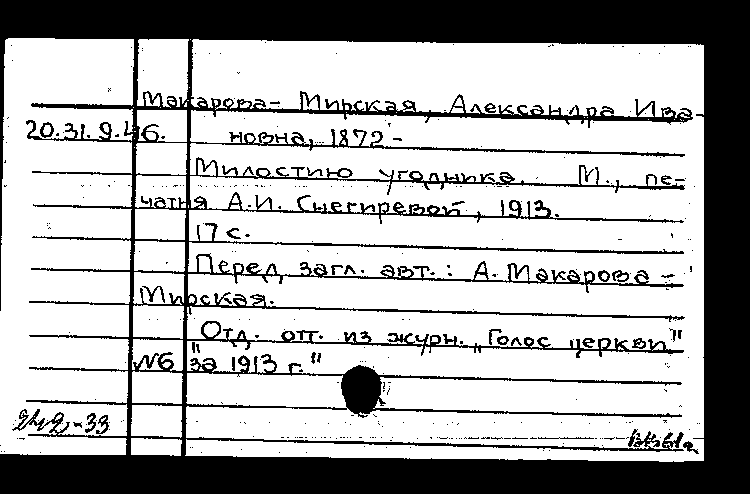 Макарова- Мирская, Александра Ива-
20.31.9.46. новна, 1872 -
Милостию угодника. М., пе-
чатня А.И. Снегиревой, 1913.
17 с.
Перед загл. авт.: А. Макарова -
Мирская.
"Отд. отт. из журн. „Голос церкви"
№6 "за 1913 г."